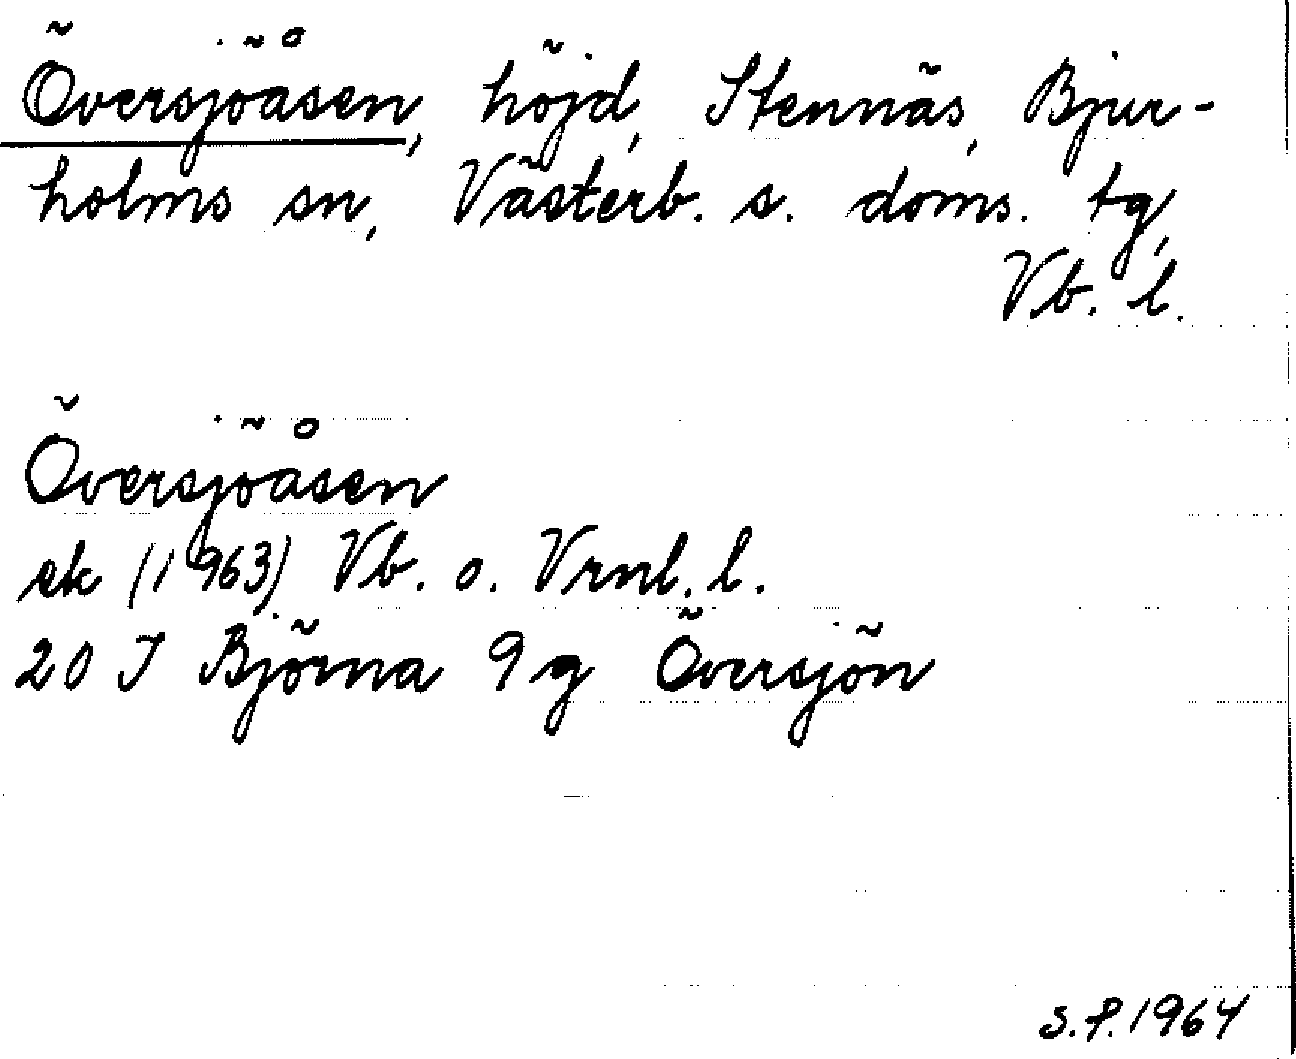 Översjöåsen, höjd, Stennäs, Bjur-
holms sn, Västerb. s. doms. tg,
Vb. l.
Översjöåsen
ek (1963) Vb. o. Vrnl. l.
20 I Björna 9 g Översjön
S.P. 1964